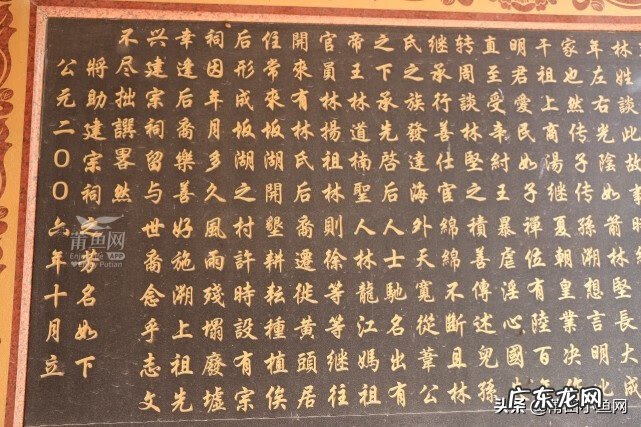 林姓談此故事大成
年左右光陰如箭林堅明
家也然传子传孫溯想言
干祖上商湯继夏朝皇業決
明君愛民如子禪位有陸百
直至受辛紂王暴虐淫心國
转周談林堅之積善傳述兒孫
继承行善仕官綿綿不斷且林
氏之族發達海外天寬從葦公
之下承先啓后人士馳名出有
帝王林道楠聖人林龍江媽祖
官員林揚祖林則徐等等继往
開來有林氏后裔遷徙黄頭居
住常來坂湖開墾耕耘種植俟
后形成坂湖之村計時設有宗
祠因年月多久風雨殘塌廢墟
幸逢后裔樂善好施溯上祖先
兴建宗祠留与世裔念乎志文
不尽拙譔畧然
將助建宗祠之芳名如下
公元二00六年十月立
莆鱼网
APP
Putian
头条
鱼网
广东龙网